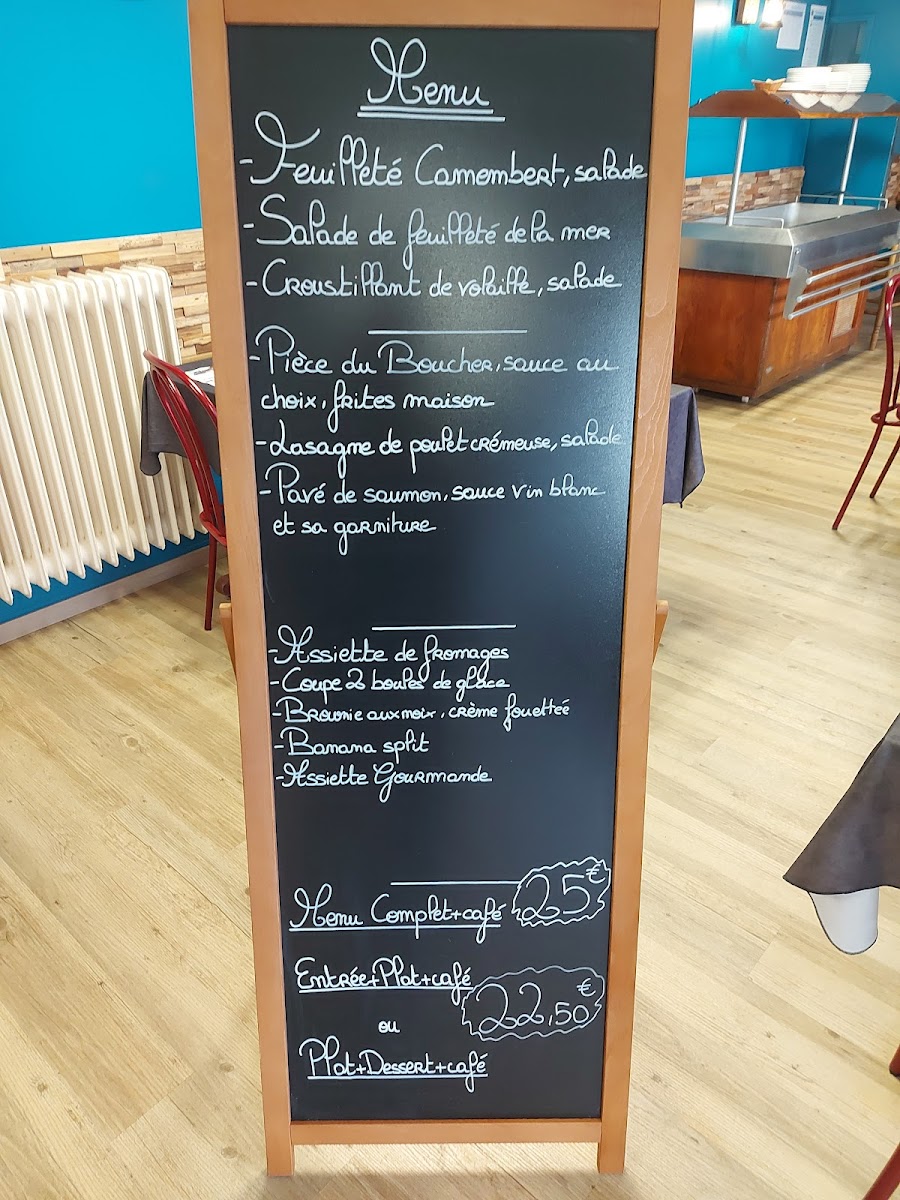 Menu
- Feuilleté Camembert, salade
- Salade de feuilleté de la mer
- Croustillant de volaille, salade
- Pièce du Boucher, sauce au
choix, frites maison
- Lasagne de poulet crémeuse, salade
- Pavé de saumon, sauce vin blanc
et sa garniture
- Assiette de fromages
- Coupe 2 boules de glace
- Brownie aux noix, crème fouettée
- Banana split
- Assiette Gourmande
Menu Complet+café 25€
Entrée+Plat+café
22,50€
ou
Plat+Dessert+café